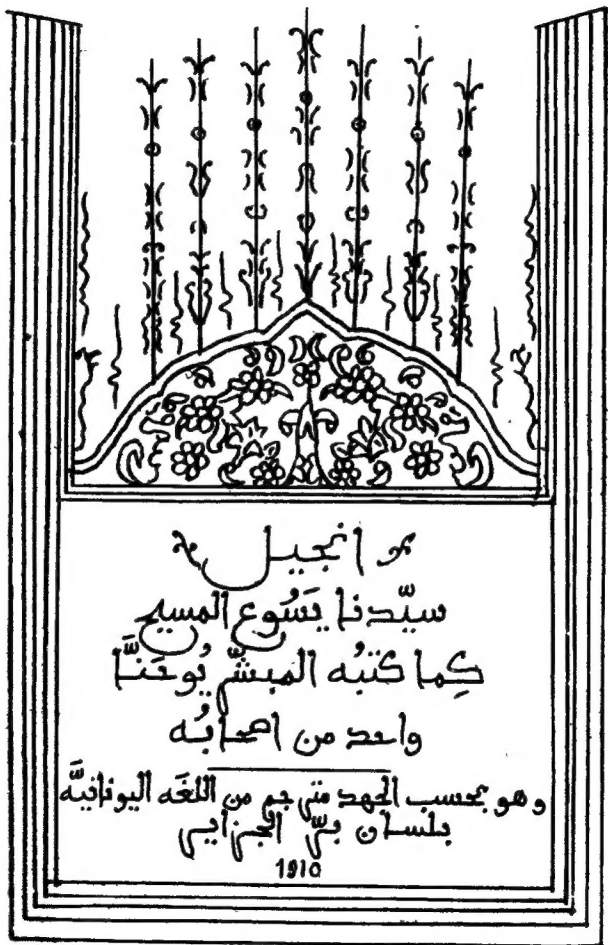 انجيل
سيّدنا يَسُوع المسيح
كِما كتبُه المبشّر يُوحَنَّا
واحد من اصحابُه
وهو بحسب الجهد مترجم من اللغَه اليونانيَّه
بلسان برّ الجزاير
1910